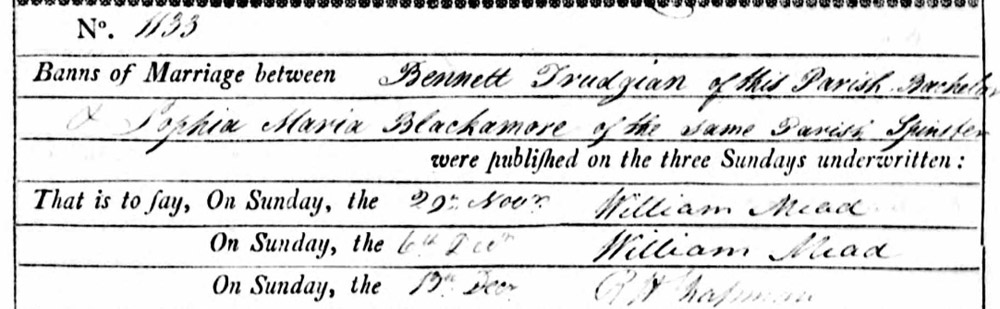 No. 1133
Banns of Marriage between Bennett Trudgian of this Parish Bachelor
& Sophia Maria Blackamore of the same Parish Spinster
were publiſhed on the three Sundays underwritten:
That is to ſay, On Sunday, the 29th Novr William Mead
On Sunday, the 6th Decr William Mead
On Sunday, the 13th Decr R H Chapman